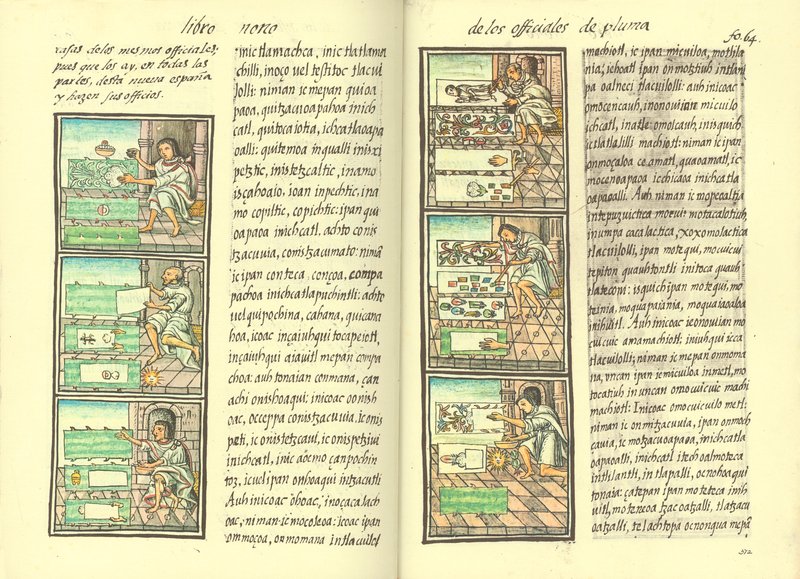 libro nono
rasas de los mesmos officiales,
pues que los ay, en todas las
partes, desta nueua españa
y hazen sus officios.
mictlamachca, inic tlatlama
chilli, inoço vel testitoc tlacui
lolli: niman ic mepan quioa
paoa, quitzacuoapahoa inich
catl, quitocaiotia, ichcatlaoapa
oalli: quitemoa inqualli
petztic, iniztetzcaltic,
ioan inpechtic, ina
mo copiltic, copichtic: ipan qui
oapaoa inichcatl, achto conis
tzacuuia, conistzacumato: nimã
ic ipan conteca, conçoa, compa
pachoa inichcatlapuchintli: achto
vel quipochina, cahana, quicana
hoa, icoac inçaiuhqui tocapeiotl,
inçaiuhqui aiauitl mepan compa
choa: auh tonaian conmana, çan
achi onishoaqui: inicoac onish
oac, occeppa conistzacuuia. ic onis
petzi, ic onistetzcaui, ic onispetziui
inichcatl, inic aocmo çanpochin
toz, icuel ipan onhoaqui intzacutli
Auh inicoac ohoac, inoçacalach
oac, niman ic mocoleoa: icoac ipan
ommoçoa, onmomana intlacuilol
de los officiales de pluma
fo. 64.
machiotl, ic ipan micuiloa, mothila
nia, iehoatl ipan onmotztiuh intlani
pa oalneci tlacuilolli: auh inicoac
omocencauh, inonouiian micuilo
ichcatl, inatle omolcauh, inisquich
ictlatlalilli machiotl: niman ic ipan
onmoçaloa ce amatl, quaoamatl, ic
mocenoapaoa icchicaoa inichcatla
oapaoalli. Auh niman ic mopeoaltia
intepuzuictica moeui: motacalotiuh,
inumpa cacalactica, xoxomolactica
tlacuilolli, ipan motequi, mocuicui
tepiton quauhtontli initoca quauh
tlateconi: isquich ipan motequi, mo
teinia, moquapaiania, moquaiaoaloa
inihuitl. Auh inicoac ic onouian mo
cuicuic amamachiotl: iniuhqui icca
tlacuilolli; niman ic mepan onmoma
na, vncan ipan ic micuiloa inmetl, mo
tocatiuh in vncan omocuicuic machi
machiotl: Inicoac omocuicuilo metl:
niman ic onmitzacuuia, ipan onmoch
cauia, ic motzacuoapaoa, inichcatla
oapaoalli, inichcatl itech oalmoteca
inthilantli, in tlapalli, ocnohoaqui
tonaia: çatepan ipan moteteca inih
uitl, moteneoa tzacoatzalli, tlatzacu
oatzalli, te lachtopa ocnonqua mepã
312